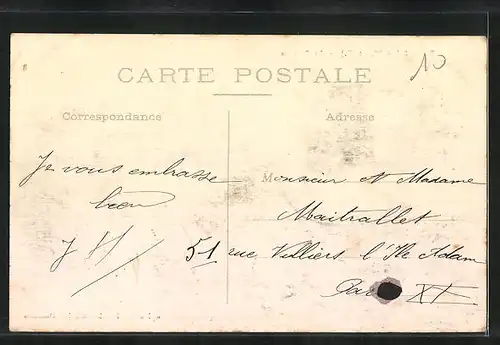 10
CARTE POSTALE
Correspondance
Adresse
Je vous embrasse
bien
J H
Monsieur et Madame
Maitrallet
51 rue Villiers l'Ile Adam
Par XX